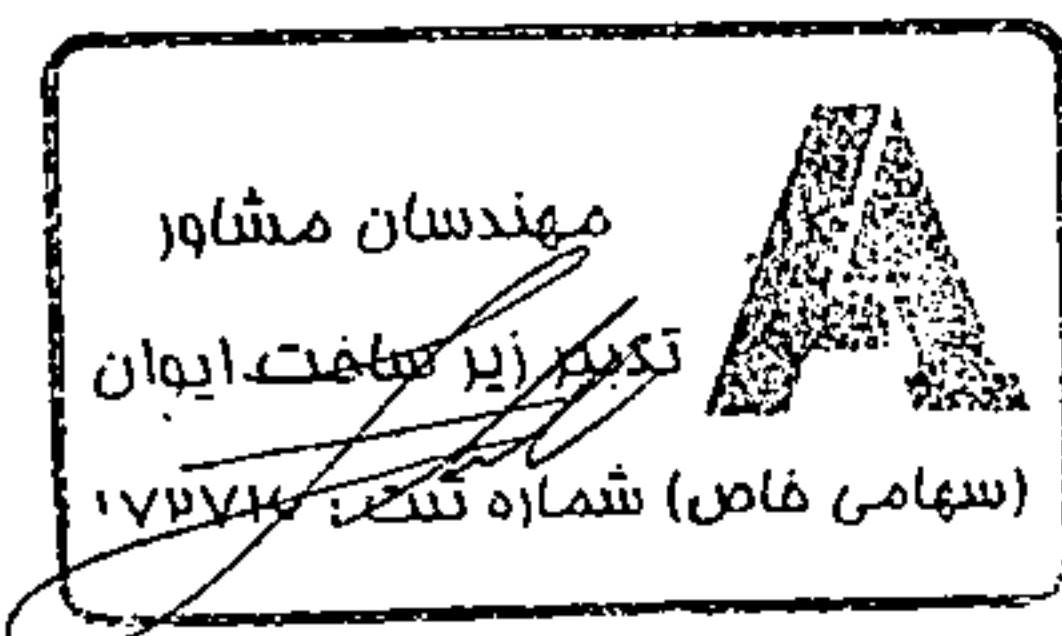 A
مهندسان مشاور
تدبیر زیر ساخت ایوان
(سهامی خاص) شماره ثبت: